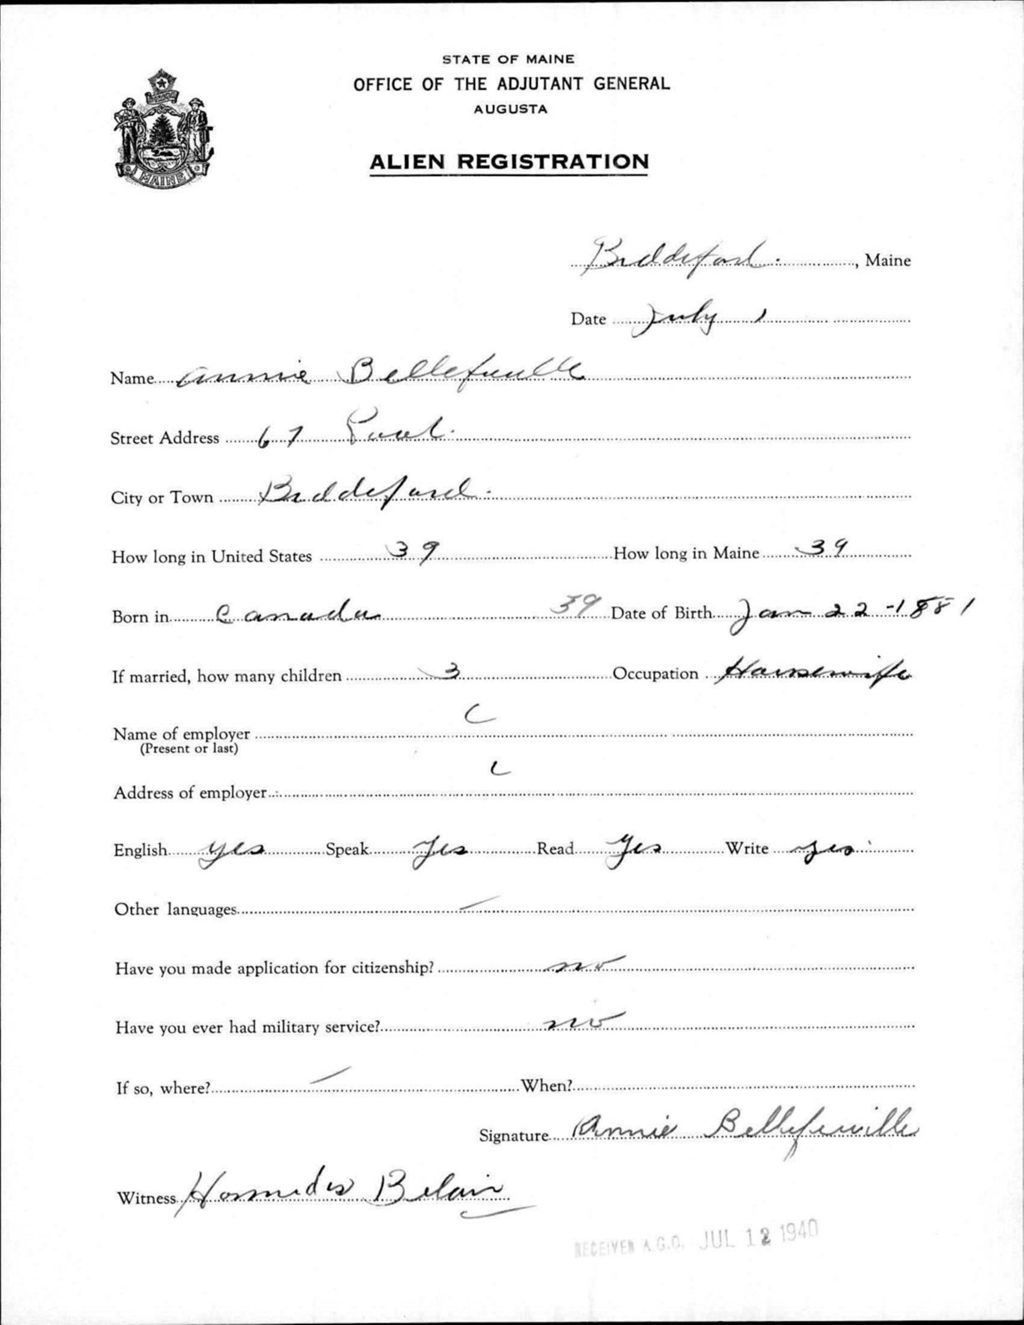 STATE OF MAINE
OFFICE OF THE ADJUTANT GENERAL
AUGUSTA
MAINE
ALIEN REGISTRATION
Biddeford, Maine
Date July 1
Name Annie Bellefeuille
Street Address 67 Pool
City or Town Biddeford
How long in United States 39 How long in Maine 39
Born in Canada 39 Date of Birth Jan 22 - 1881
If married, how many children 3 Occupation Housewife
Name of employer
(Present or last)
Address of employer
English yes Speak Yes Read Yes Write yes
Other languages —
Have you made application for citizenship? no
Have you ever had military service? no
If so, where? — When?
Signature Annie Bellefeuille
Witness Hormidas Belair
RECEIVED A.G.O. JUL 12 1940